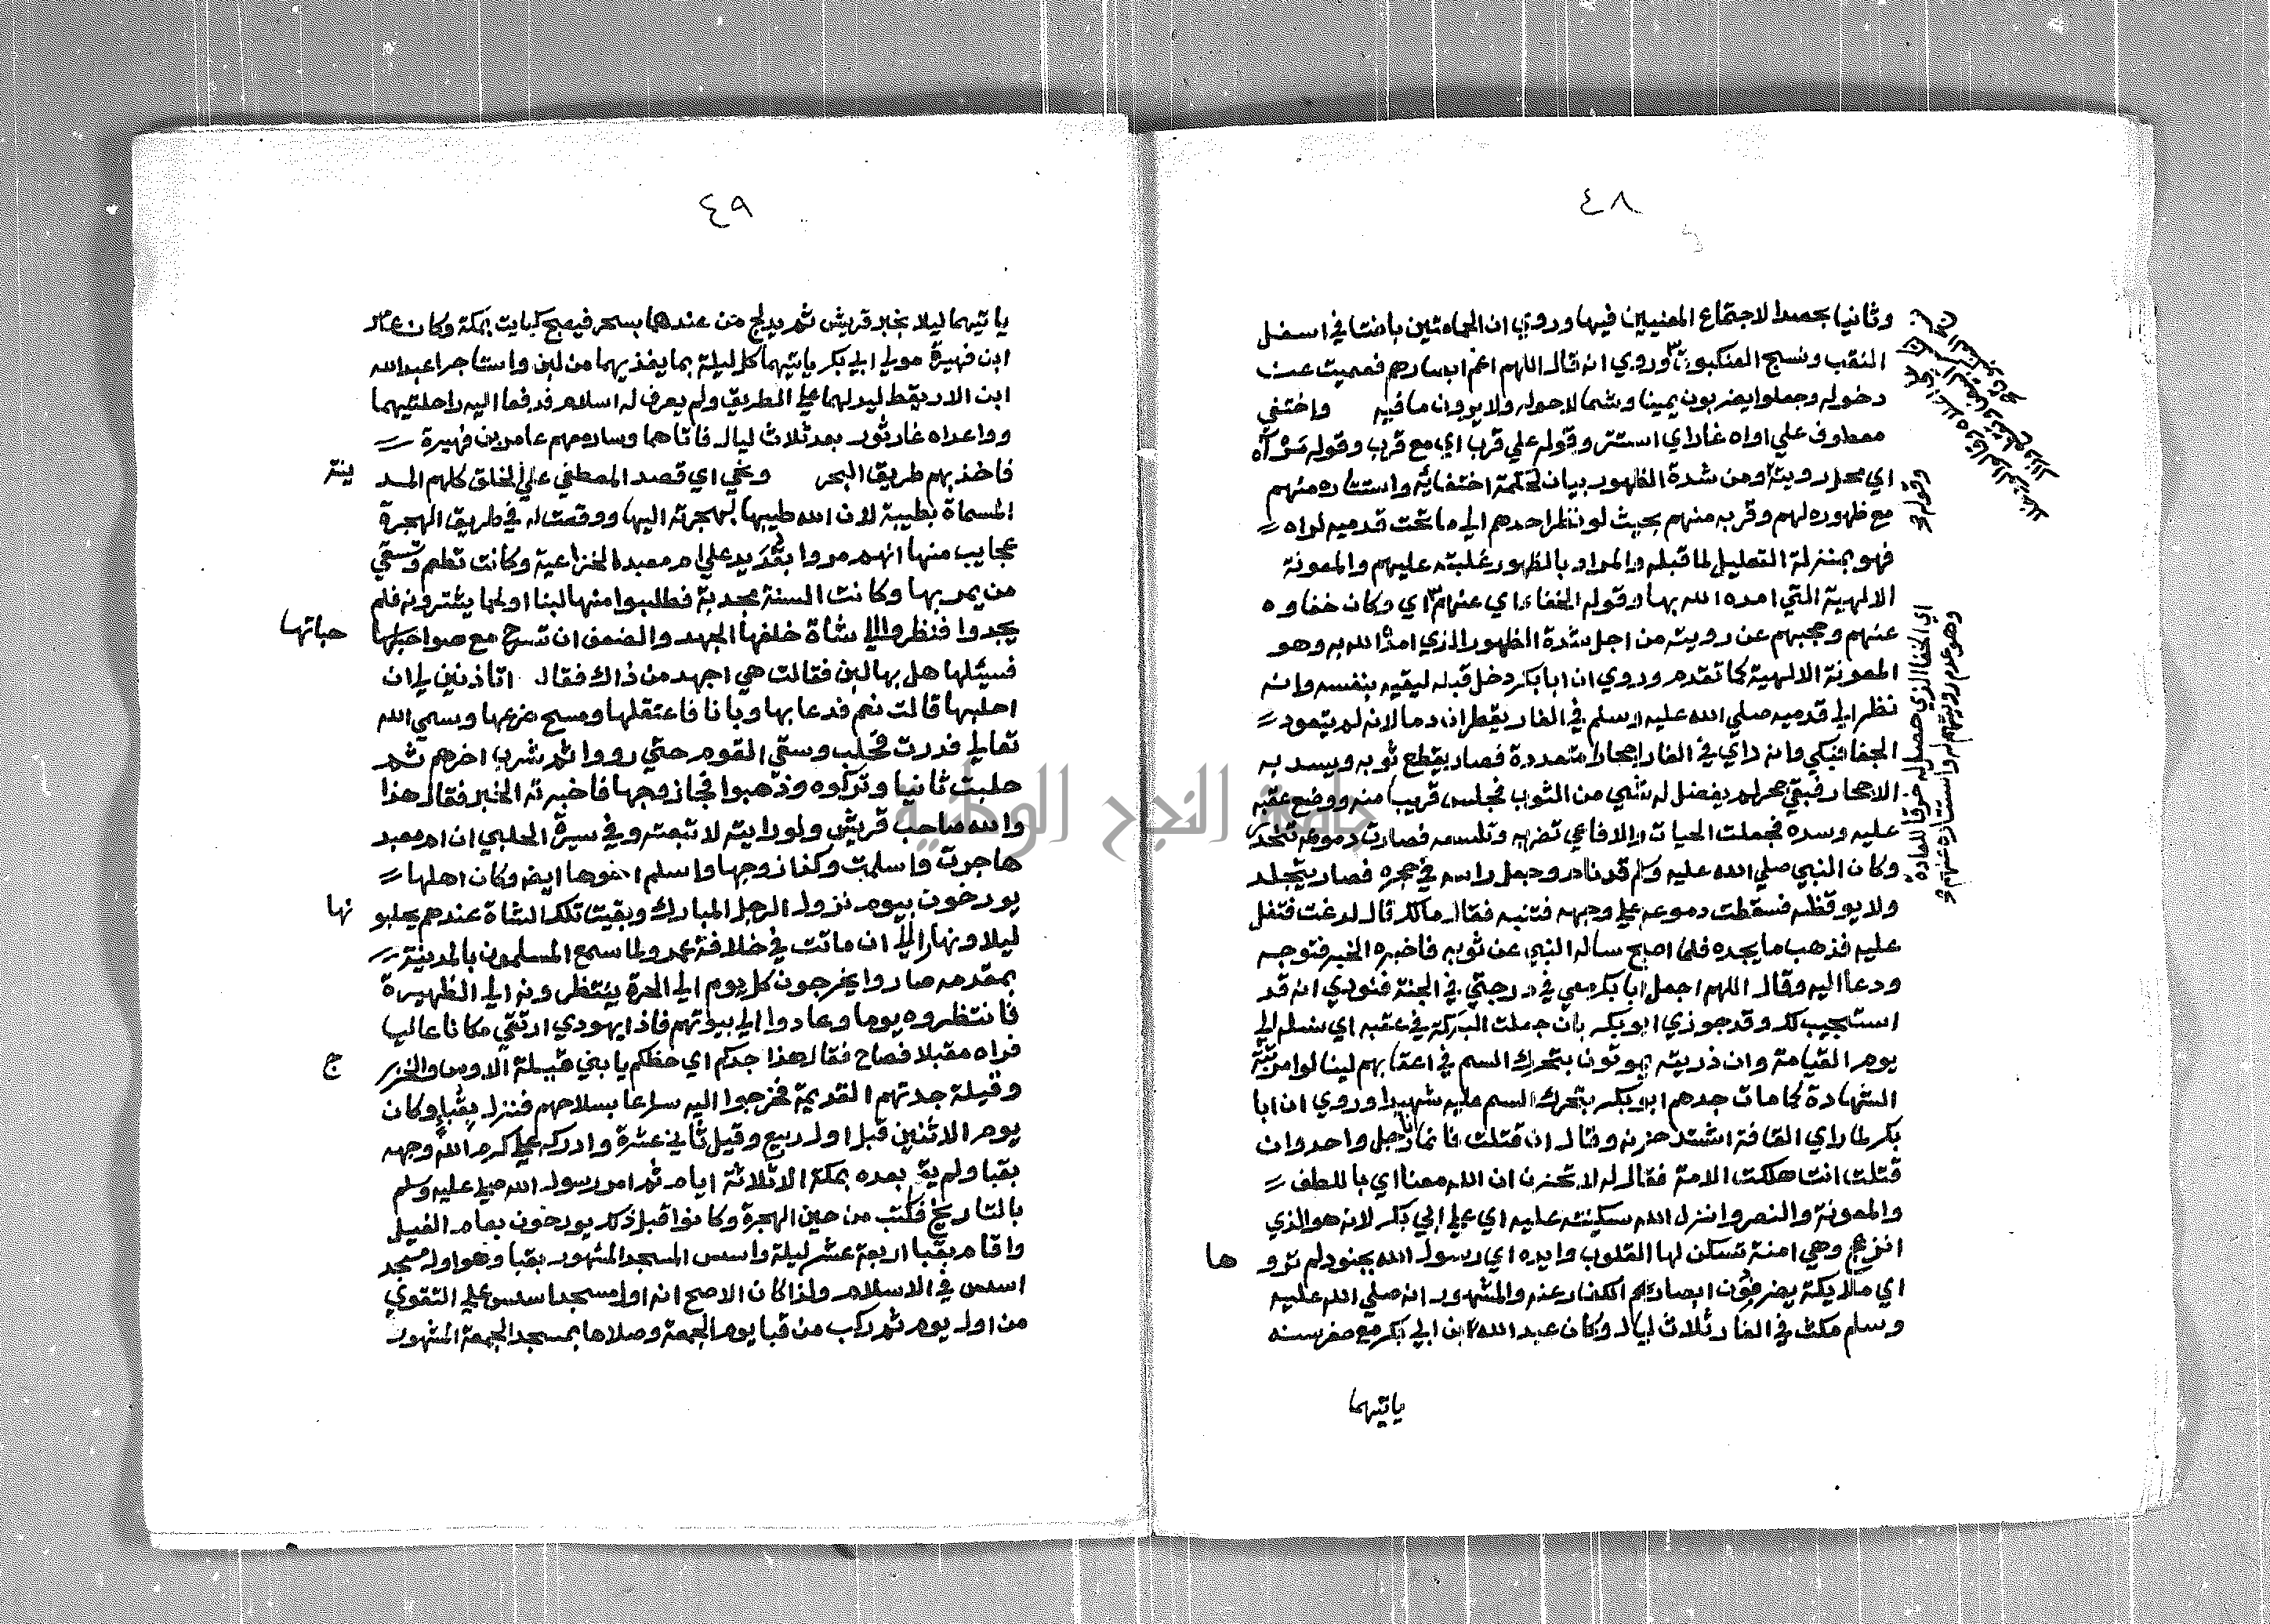 ٤٨
وثانيا بحصد الاجتماع المعنيين فيها وروي ان الحمامتين باضتا في اسفل
النقب ونسج العنكبوت وروي انه قال اللهم اعم ابصارهم فعميت عن
دخوله وجعلوا يضربون يمينا وشمالا حوله ولا يرون ما فيه واختفي
معطوف علي اواه غار اي استتر وقوله علي قرب اي مع قرب وقوله مرآه
اي محل رويته ومن شدة الظهور بيان لحكمة اختفائه واستتاره منهم
مع ظهوره لهم وقربه منهم بحيث لو نظر احدهم الي ما تحت قدميه لراه
فهو بمنزلة التعليل لما قبله والمراد بالظهور غلبته عليهم والمعونة
الالهية التي امده الله بها وقوله الخفاء اي عنهم اي وكان خفاوه
عنهم وحجبهم عن رويته من اجل شدة الظهور الذي امده الله به وهو
المعونة الالهية كما تقدم وروي ان ابا بكر دخل قبله ليقيه بنفسه وانه
نظر الي قدميه صلي الله عليه وسلم في الغار يقطران دما لانه لم يتعود
الجفا فبكي وانه راي في الغار اجحارا متعددة فصار يقطع ثوبه ويسد به
الاجحار فبقي جحر لم يفضل له شي من الثوب فجلس قريبا منه ووضع عقبه
عليه وسده فجعلت الحيات والافاعي تضربه وتلسعه فصارت دموعه تتحدر
وكان النبي صلي الله عليه وسلم قد نام وجعل راسه في حجره فصار يتجلد
ولا يوقظه فسقطت دموعه علي وجهه فتنبه فقال مالك قال لدغت فتفل
عليه فذهب ما يجده فلما اصبح ساله النبي عن ثوبه فاخبره الخبر فتوجه
ودعا اليه وقال اللهم اجعل ابا بكر معي في درجتي في الجنة فنودي انه قد
استجيب لك وقد جوزي ابو بكر بان جعلت البركة في عقبه اي نسله الي
يوم القيامة وان ذريته يموتون بتحرك السم في اعقابهم لينالوا مرتبة
الشهادة كما مات جدهم ابو بكر بتحرك السم عليه شهيدا وروي ان ابا
بكر لما راي القافة اشتد حزنه وقال ان قتلت فانما انا رجل واحد وان
قتلت انت هلكت الامة فقال له لا تحزن ان الله معنا اي باللطف
والمعونة والنصر وانزل الله سكينته عليه اي علي ابي بكر لانه هو الذي
انزعج وهي امنة تسكن لها القلوب وايده اي رسول الله بجنود لم تروها
اي ملايكة يصرفون ابصار الكفار عنه والمشهور انه صلي الله عليه
وسلم مكث في الغار ثلاث ليال وكان عبد الله ابن ابي بكر مع صغر سنه
ياتيهما
وقوله
اي الخفا الذي حصل له خرقا للعادة
وهو عدم رويتهم له واستتاره عنهم
٤٩
ياتيهما ليلا بخبر قريش ثم يدلج من عندهما بسحر فيصبح كبايت بمكة وكان عامر
ابن فهيرة مولي ابي بكر ياتيهما كل ليلة بما يغذيهما من لبن واستاجرا عبد الله
ابن الاريقط ليدلهما علي الطريق ولم يعرف له اسلام فدفعا اليه راحلتيهما
وواعداه غار ثور بعد ثلاث ليال فاتاهما وسار معهم عامر بن فهيرة
فاخذ بهم طريق البحر ونحي اي قصد المصطفي علي الخلق كلهم المدينة
المسماة بطيبة لان الله طيبها لهجرته اليها ووقعت له في طريق الهجرة
عجايب منها انهم مروا بقديد علي ام معبد الخزاعية وكانت تطعم وتسقي
من يمر بها وكانت السنة مجدبة فطلبوا منها لبنا او لحما يشترونه فلم
يجدوا فنظروا الي شاة خلفها الجهد والضعف ان تسرح مع صواحباتها
فسيلها هل بها لبن فقالت هي اجهد من ذاك فقال اتاذنين لي ان
احلبها قالت نعم فدعا بها وبانا فاعتقلها ومسح ضرعها وسمي الله
تعالي فدرت فحلب وسقي القوم حتي رووا ثم شرب اخرهم ثم
حلبت ثانيا وتركوه وذهبوا فجاء زوجها فاخبرته الخبر فقال هذا
والله صاحب قريش ولو رايته لاتبعته وفي سيرة الحلبي ان ام معبد
هاجرت واسلمت وكذا زوجها واسلم اخوها ايضه وكان اهلها
يورخون بيوم نزول الرجل المبارك وبقيت تلك الشاة عندهم يحلبونها
ليلا ونهارا الي ان ماتت في خلافة عمر ولما سمع المسلمون بالمدينة
بمقدمه صاروا يخرجون كل يوم الي الحرة ينتظرونه الي الظهيرة
فانتظروه يوما وعادوا الي بيوتهم فاذا يهودي ارتقي مكانا عاليا
فراه مقبلا فصاح فقال هذا جدكم اي حظكم يا بني قيلة الاوس والخزرج
وقيلة جدتهم القديمة فخرجوا اليه سراعا بسلاحهم فنزل بقبا وكان
يوم الاثنين قبل اول ربيع وقيل ثاني عشرة وادركه علي كرم الله وجهه
بقبا ولم يقم بعده بمكة الا ثلاثة ايام ثم امر رسول الله صلي عليه وسلم
بالتاريخ فكتب من حين الهجرة وكانوا قبل ذلك يورخون بعام الفيل
واقام بقبا اربعة عشر ليلة واسس المسجد المشهور بقبا وهو اول مسجد
اسس في الاسلام ولذا كان الاصح انه اول مسجد اسس علي التقوي
من اول يوم ثم ركب من قبا يوم الجمعة وصلاها بمسجد الجمعة المشهور
جامعة النجاح الوطنية